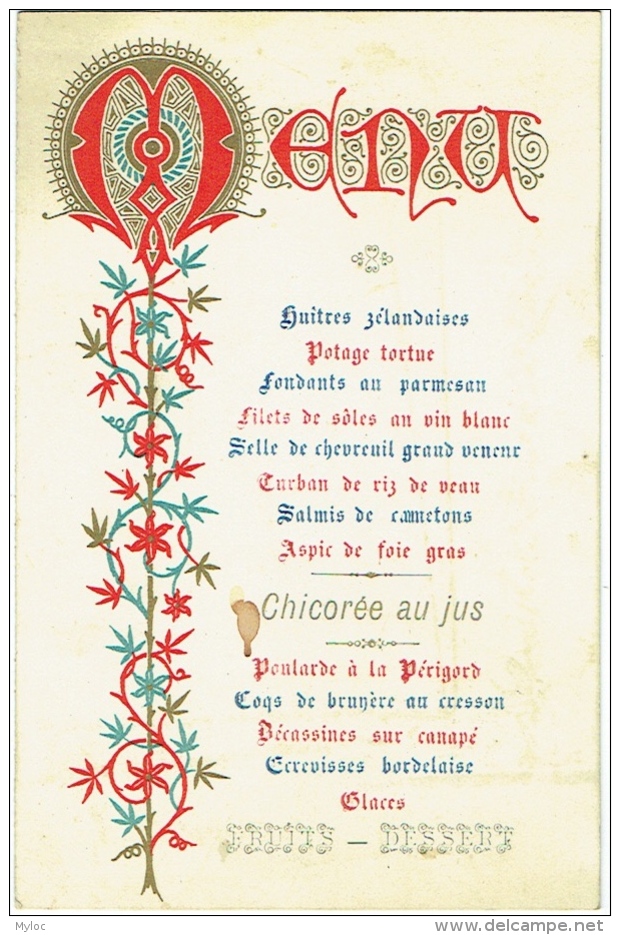 Menu
Huitres zélandaises
Potage tortue
Fondants au parmesan
Filets de sôles au vin blanc
Selle de chevreuil grand veneur
Turban de riz de veau
Salmis de cannetons
Aspic de foie gras
Chicorée au jus
Poularde à la Périgord
Coqs de bruyère au cresson
Bécassines sur canapé
Ecrevisses bordelaise
Glaces
FRUITS – DESSERT
Myloc
delcampe.net